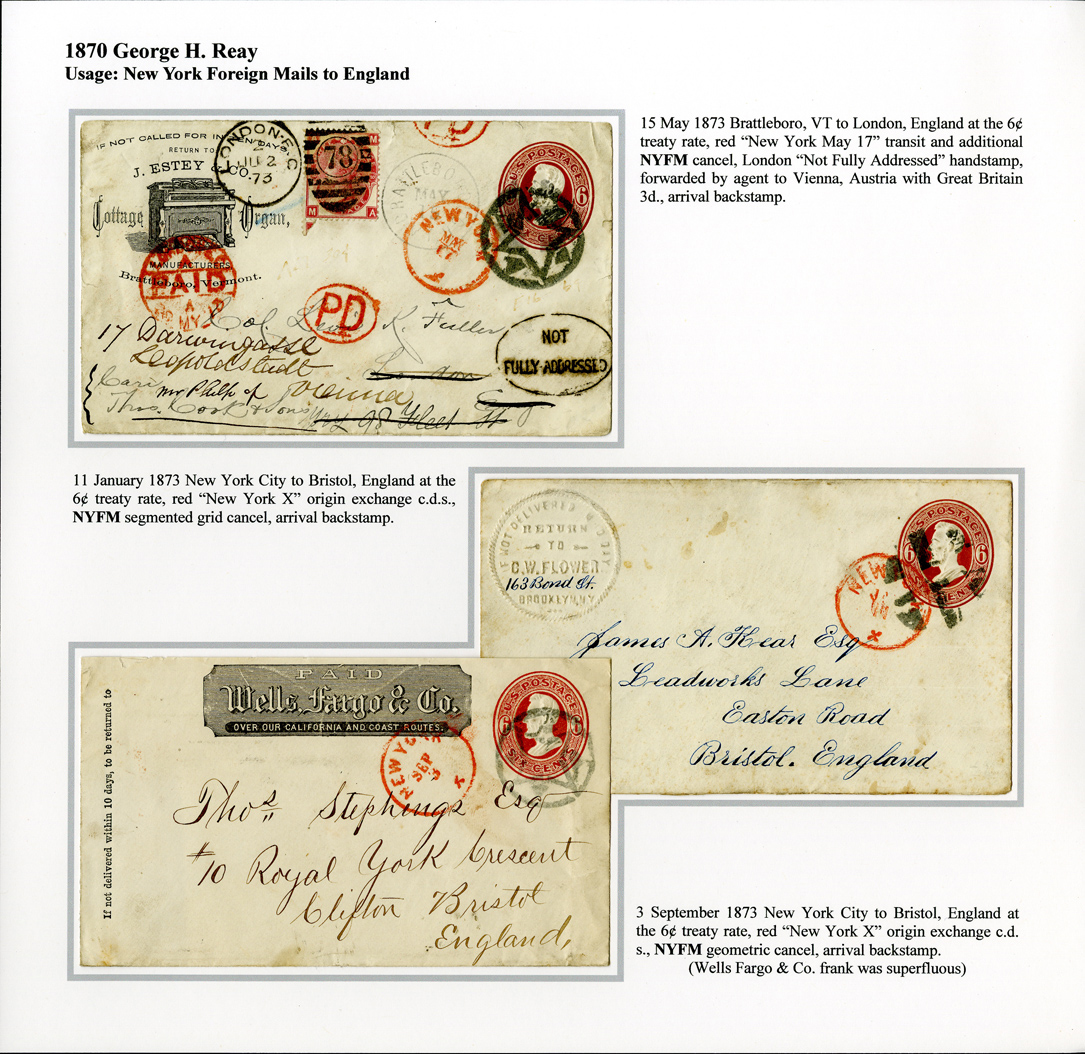 1870 George H. Reay
Usage: New York Foreign Mails to England
15 May 1873 Brattleboro, VT to London, England at the 6¢
treaty rate, red “New York May 17” transit and additional
NYFM cancel, London “Not Fully Addressed” handstamp,
forwarded by agent to Vienna, Austria with Great Britain
3d., arrival backstamp.
IF NOT CALLED FOR IN DAYS
RETURN TO
J. ESTEY & CO.
Cottage Organ,
MANUFACTURERS
Brattleboro, Vermont.
LONDON E.C
2
73
78
M
M A
PD
BRATTLEBO
MAY
NEW YO
17
U.S. POSTAGE
6
SIX CENTS
PAID
MY
PD
NOT
FULLY ADDRESSED
Col. K. Fuller
17 Darwingasse
Leopoldstadt
London
Care Mr Philp of Vienna
Thos. Cook & Son
98 Fleet St
11 January 1873 New York City to Bristol, England at the
6¢ treaty rate, red “New York X” origin exchange c.d.s.,
NYFM segmented grid cancel, arrival backstamp.
IF NOT DELIVERED IN DAY
RETURN
TO
C.W. FLOWER
163 Bond St.
BROOKLYN, N.Y.
U.S. POSTAGE
6 6
NEW
James A. Kear Esq
Leadworks Lane
Easton Road
Bristol. England
PAID
Wells, Fargo & Co.
OVER OUR CALIFORNIA AND COAST ROUTES.
U.S. POSTAGE
SIX CENTS
NEW YO
SEP
3
If not delivered within 10 days, to be returned to
Thos. Stephings Esq
#10 Royal York Crescent
Clifton Bristol
England,
3 September 1873 New York City to Bristol, England at
the 6¢ treaty rate, red “New York X” origin exchange c.d.
s., NYFM geometric cancel, arrival backstamp.
(Wells Fargo & Co. frank was superfluous)